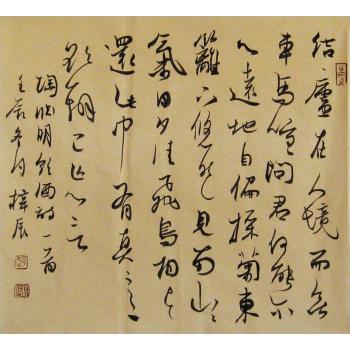 結廬在人境而無
車馬喧問君何能尔
心遠地自偏採菊東
籬下悠然見南山〻
氣日夕佳飛鳥相与
還此中有真意
欲辨已忘言
陶渊明飲酒詩一首
壬辰冬月梓辰